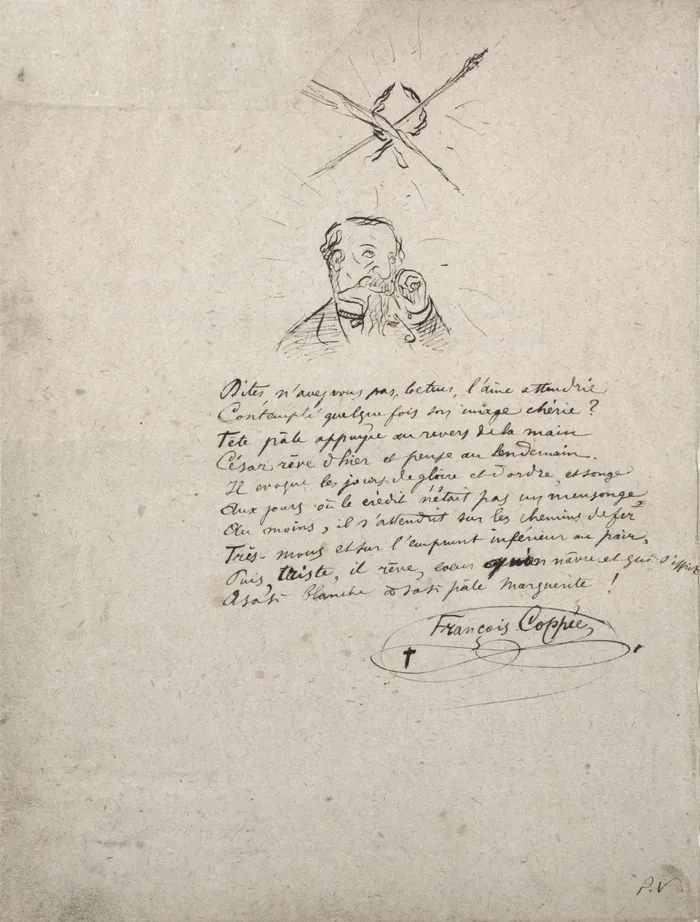 Dites n'avez vous pas, lecteurs, l'âme attendrie
Contemplé quelque fois son image chérie ?
Tête pâle appuyée au revers de la main
César rêve d'hier et pense au lendemain.
Il évoque les jours de gloire et d'ordre, et songe
Aux jours où le crédit n'était pas un mensonge
Au moins, il s'attendrit sur les chemins de fer
Très-mous et sur l'emprunt inférieur au pair,
Puis, triste, il rêve, coeur qui navré et qui s'
à sa si blanche à sa si pâle Marguerite !
François Coppée
P.V